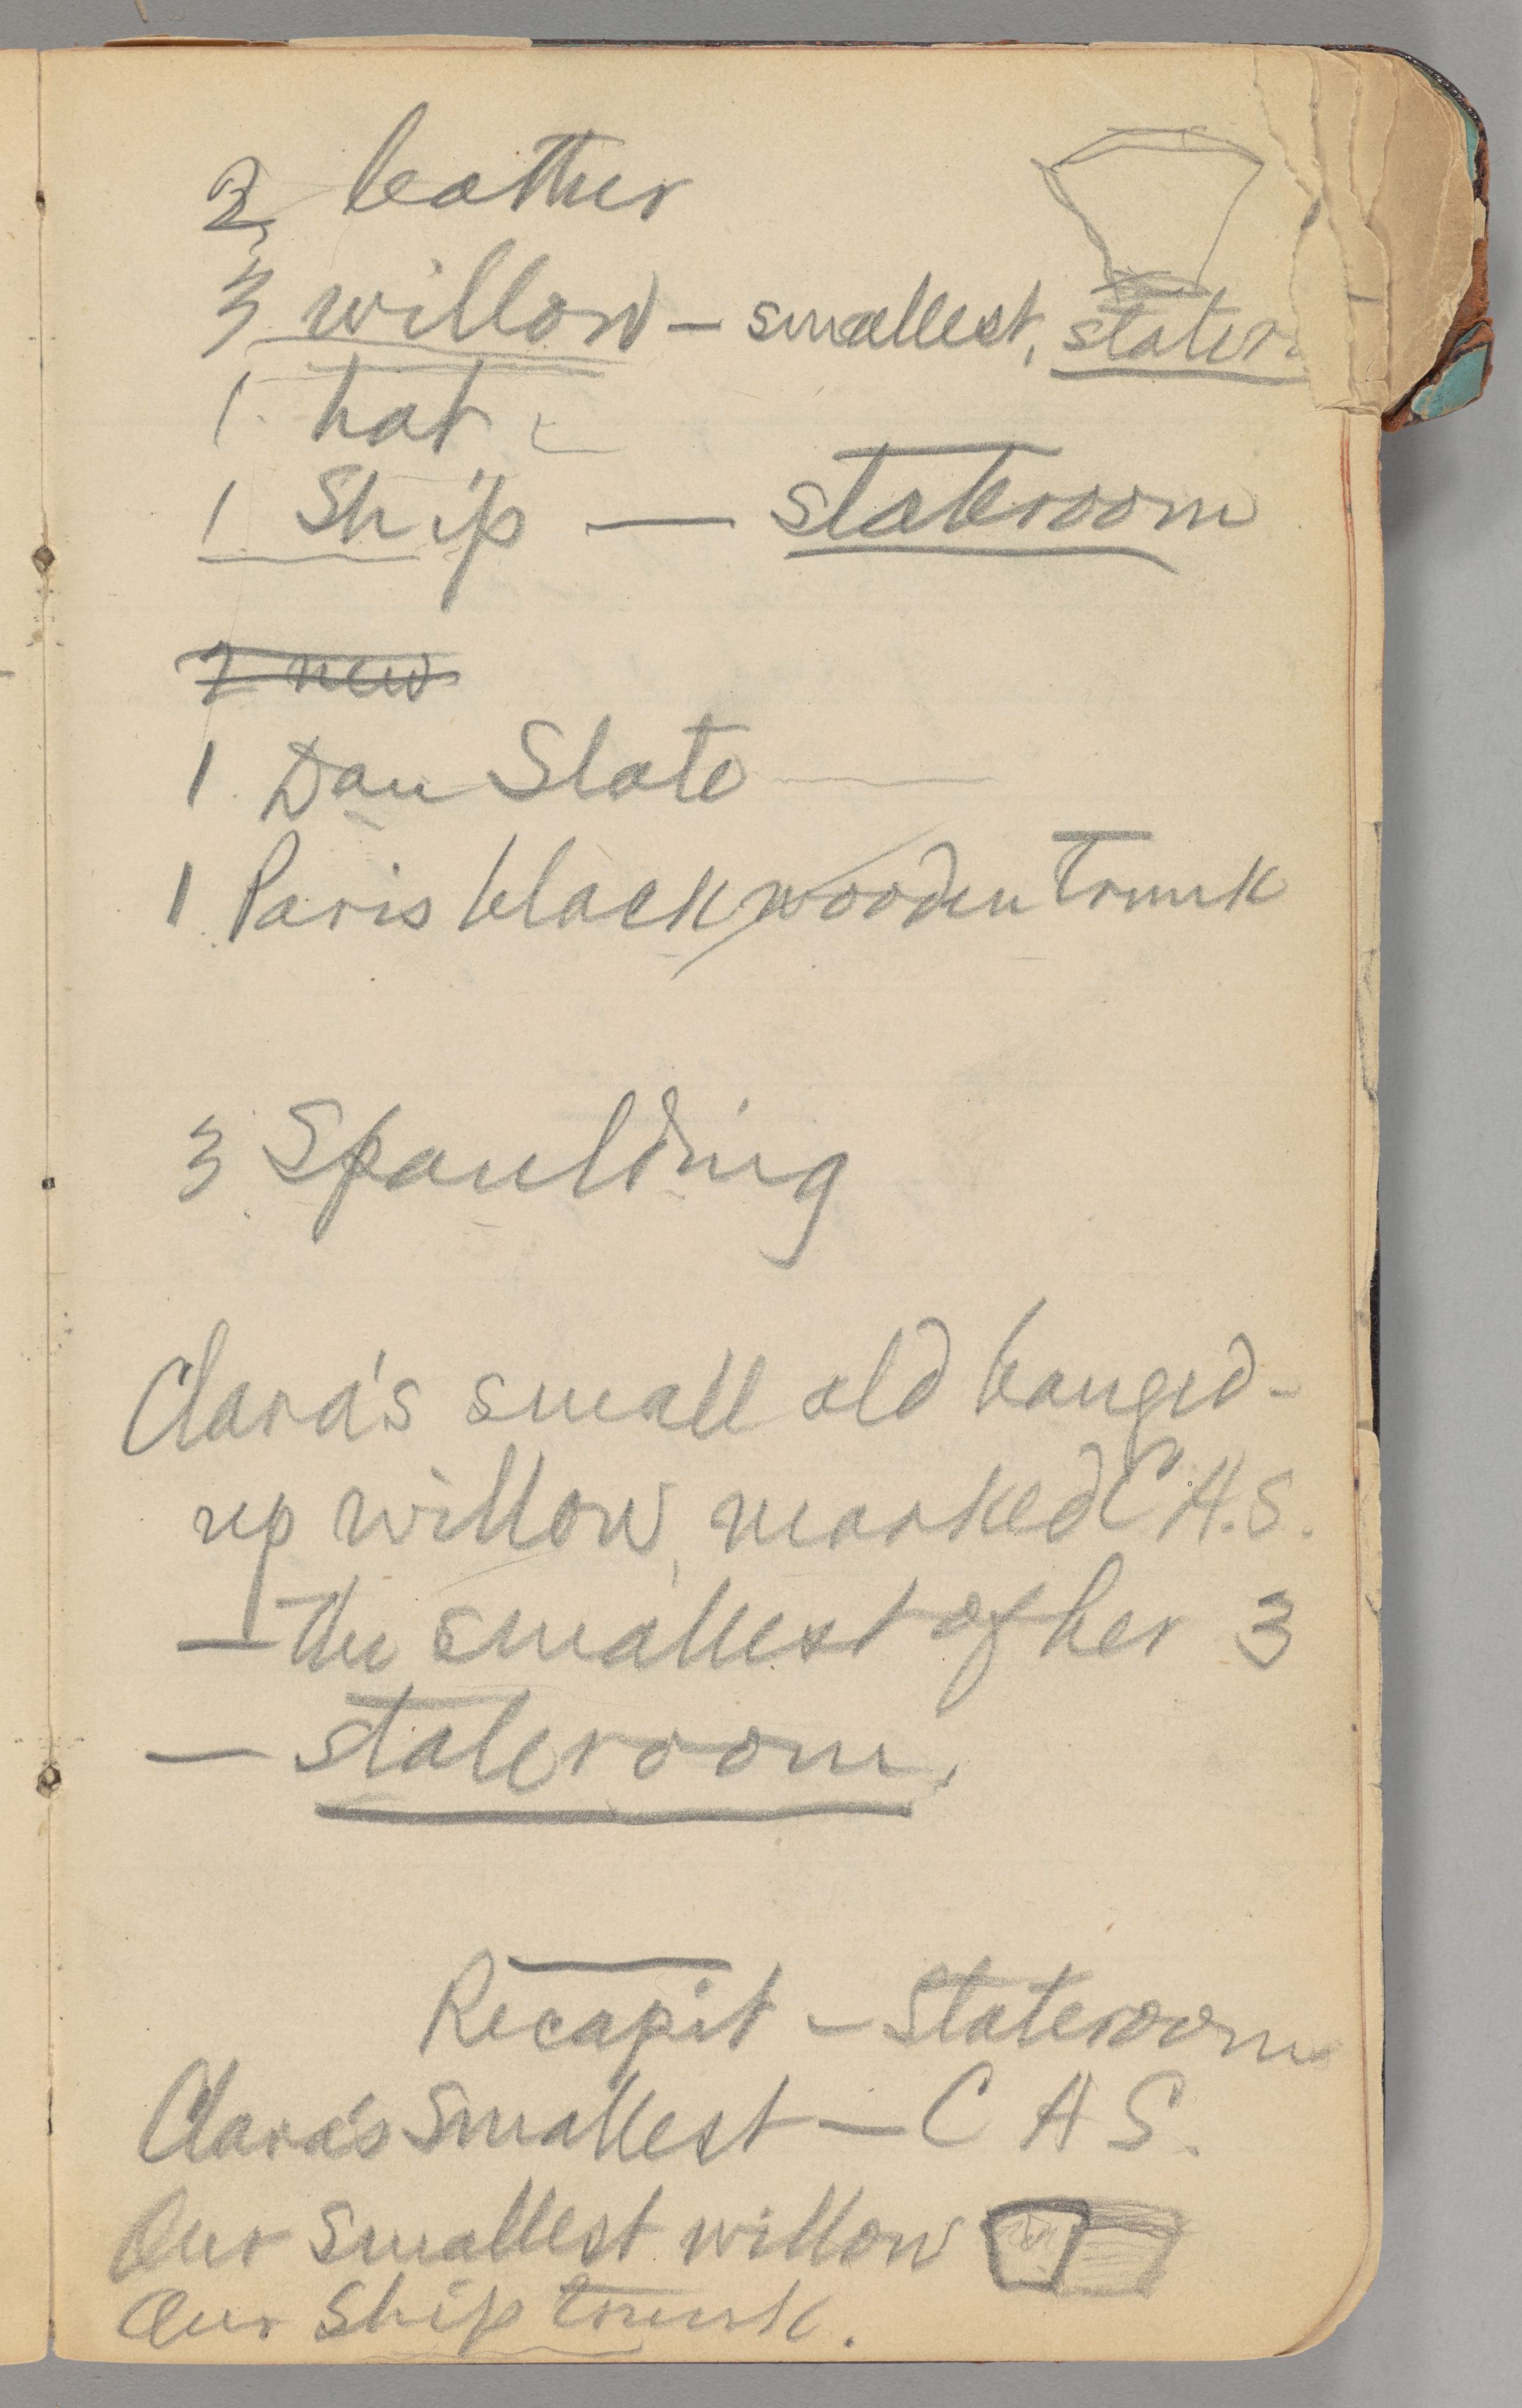 2 leather
3 willow – smallest, stater
1 hat
1 Ship — stateroom
2 new
1 Dan Slote
1 Paris black wooden trunk
3 Spaulding
Clara's small old banged-
up willow, marked C.H.S.
— the smallest of her 3
— stateroom.
Recapit – Stateroom
Clara's smallest — C H S.
Our smallest willow
Our Ship trunk.